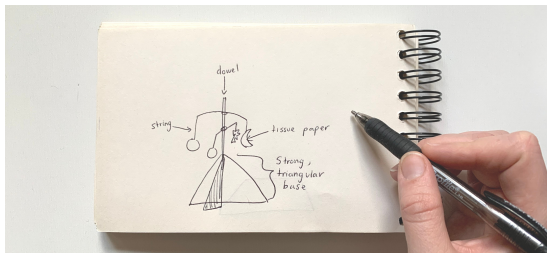 dowel
string
tissue paper
Strong,
triangular
base